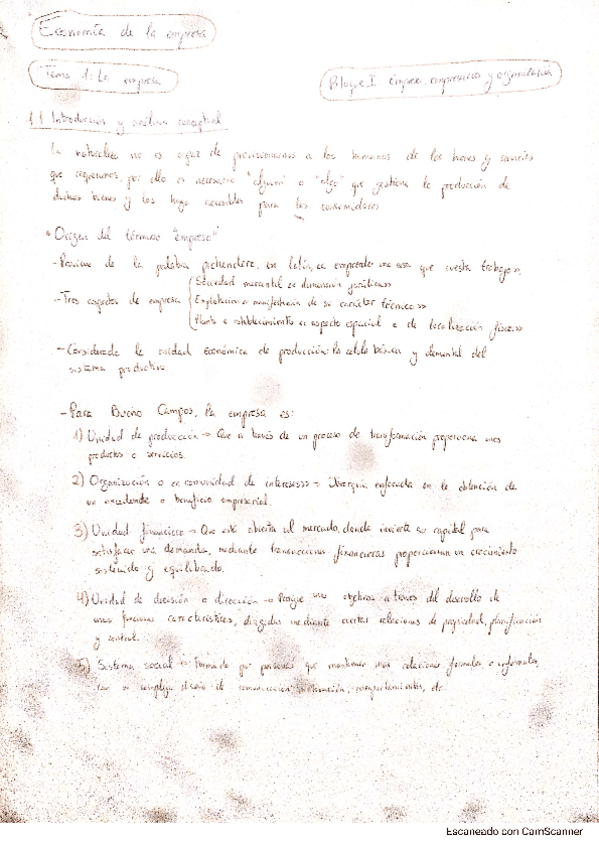 Economía de la empresa
Tema 1: La empresa
Bloque I empresa, empresarios y organización
1.1 Introducción y análisis conceptual
La naturaleza no es capaz de provisionarnos a los humanos de los bienes y servicios
que requerimos, por ello es necesario "alguien" o "algo" que gestione la producción de
dichos bienes y los haga accesibles para los consumidores
• Origen del término "empresa"
- Proviene de la palabra prehendere, en latín, << emprender una cosa que cuesta trabajo>>.
Sociedad mercantil << dimensión jurídica>>
- Tres aspectos de empresa
Explotación << manifestación de su carácter técnico>>
Planta o establecimiento << aspecto espacial o de localización física>>
- Considerada la unidad económica de producción: la célula básica y elemental del
sistema productivo
- Para Bueno Campos, la empresa es:
1) Unidad de producción → Que a través de un proceso de transformación proporciona unos
productos o servicios.
2) Organización o << comunidad de intereses>> → Jerarquía enfocada en la obtención de
un excedente o beneficio empresarial.
3) Unidad financiera → Que está abierta al mercado, donde invierte su capital para
satisfacer una demanda, mediante transacciones financieras proporcionan un crecimiento
sostenido y equilibrado.
4) Unidad de decisión o dirección → Persigue unos objetivos a través del desarrollo de
unas funciones características, dirigidas mediante ciertas relaciones de propiedad, planificación
y control.
5) Sistema social → Formado por personas que mantienen unas relaciones formales o informales,
con un complejo diseño de comunicación, motivación, comportamientos, etc.
Escaneado con CamScanner